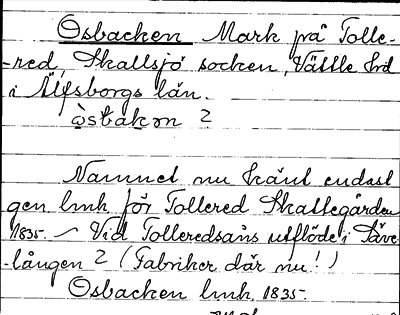 Osbacken Mark på Tolle-
-red, Skallsjö socken, Vättle hrd
i Älfsborgs län.
òsbakən 2
Namnet nu känt endast
gen lmk för Tollered Skattegården
1835. – Vid Tolleredsåns utflöde i Säve-
-lången 2 (Fabriker där nu!)
Osbacken lmk. 1835.